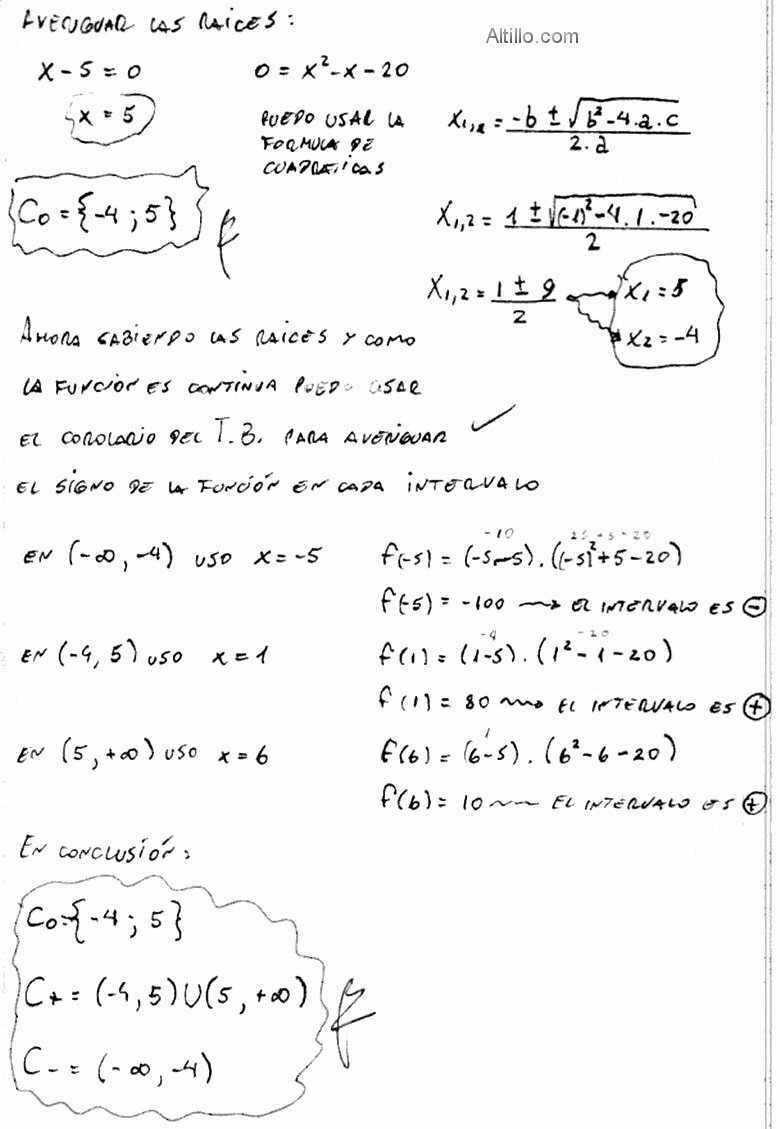 AVERIGUAR LAS RAICES:
Altillo.com
x - 5 = 0
0 = x² - x - 20
x = 5
PUEDO USAR LA
FORMULA DE
CUADRATICAS
x₁,₂ = (-b ± √(b² - 4.a.c)) / 2.a
C₀ = {-4 ; 5}
X₁,₂ = (1 ± √((-1)² - 4.1.-20)) / 2
X₁,₂ = (1 ± 9) / 2
X₁ = 5
X₂ = -4
AHORA SABIENDO LAS RAICES Y COMO
LA FUNCIÓN ES CONTINUA PUEDO USAR
EL COROLARIO DEL T.B. PARA AVERIGUAR ✓
EL SIGNO DE LA FUNCIÓN EN CADA INTERVALO
-10 25+5-20
EN (-∞, -4) USO x = -5 f(-5) = (-5-5).((-5)²+5-20)
f(-5) = -100 → EL INTERVALO ES ⊖
-4 -20
EN (-4, 5) USO x = 1 f(1) = (1-5).(1²-1-20)
f(1) = 80 → EL INTERVALO ES ⊕
1
EN (5, +∞) USO x = 6 f(6) = (6-5).(6²-6-20)
f(6) = 10 — EL INTERVALO ES ⊕
EN CONCLUSIÓN:
C₀={-4 ; 5}
C+ = (-4, 5) U (5, +∞)
C- = (-∞, -4)